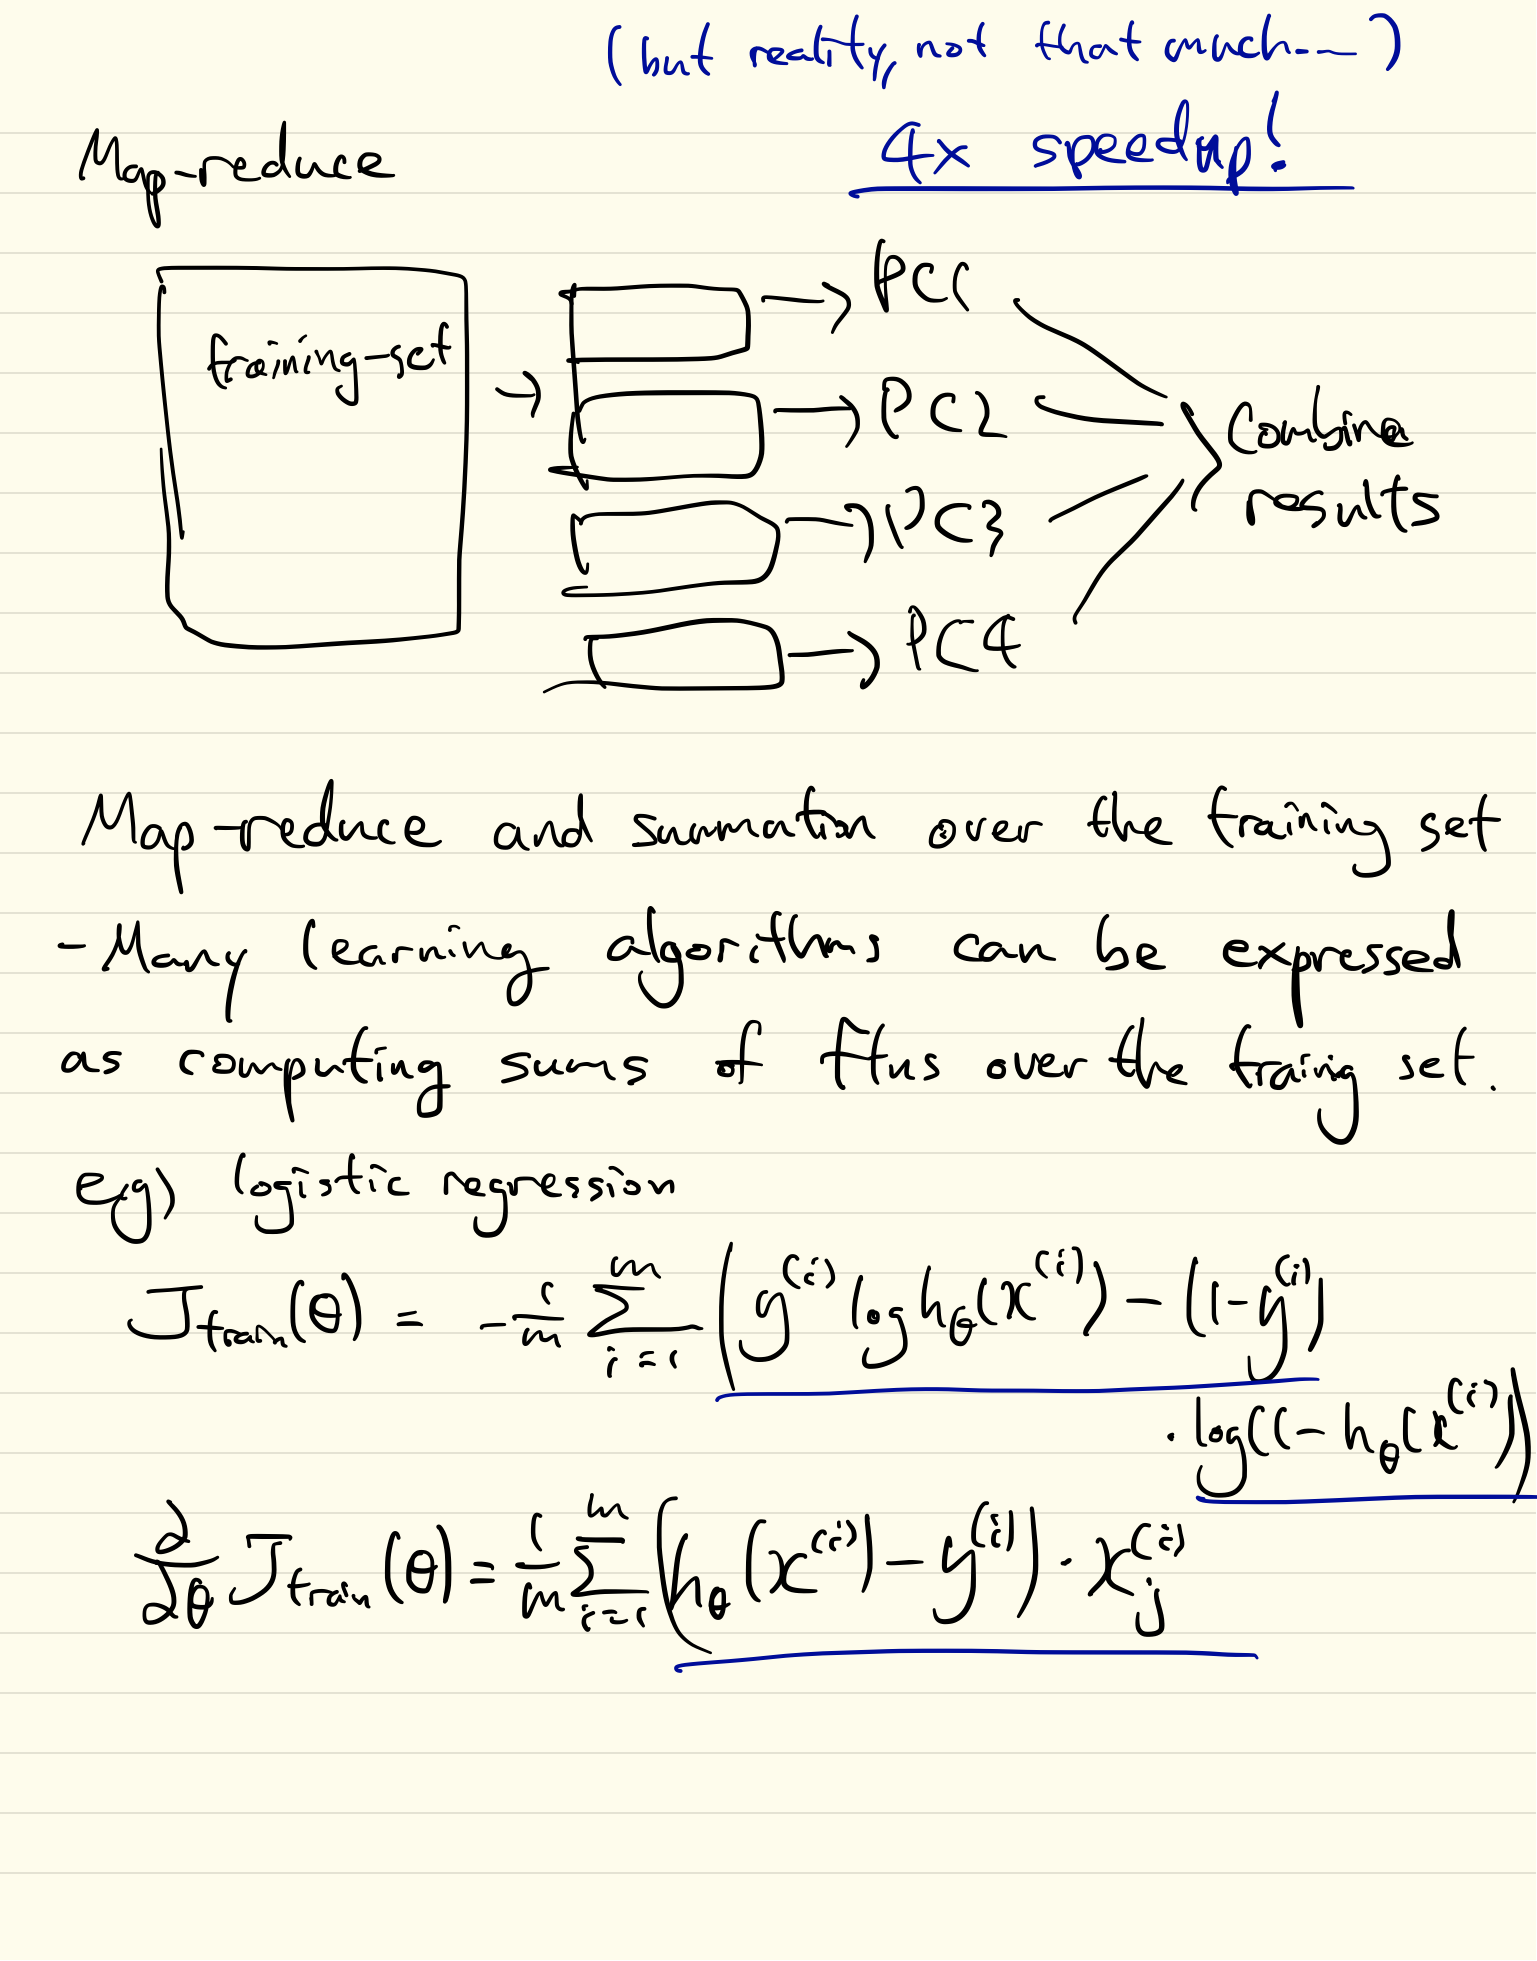 (but reality, not that much....)
4x speedup!
Map-reduce
training-set
PC1
PC2
PC3
PC4
Combine
results
Map-reduce and summation over the training set
- Many learning algorithms can be expressed
as computing sums of ftns over the traing set.
eg) logistic regression
J_train(θ) = -1/m Σ_{i=1}^{m} (y^(i) log h_θ(x^(i)) - (1-y^(i))
· log(1 - h_θ(x^(i)))
∂/∂θ J_train(θ) = 1/m Σ_{i=1}^{m} (h_θ(x^(i)) - y^(i)) · x_j^(i)